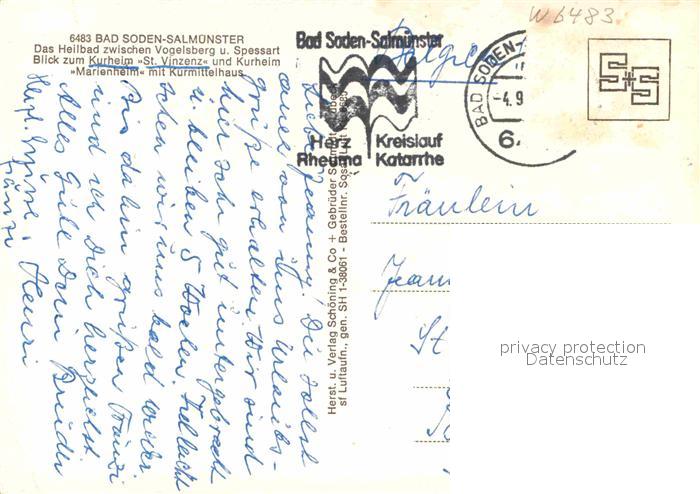 W6483
6483 BAD SODEN-SALMÜNSTER
Das Heilbad zwischen Vogelsberg u. Spessart
Blick zum Kurheim »St. Vinzenz« und Kurheim
»Marienheim« mit Kurmittelhaus
Bad Soden-Salmünster
Herz Kreislauf
Rheuma Katarrhe
BAD SODEN-
-4.9
6
Liebe Jeanny! Du sollst
auch von uns Urlaubs-
grüße erhalten. Wir sind
hier sehr gut untergebracht
u. bleiben 5 Wochen. Vielleicht
sehen wir uns bald wieder
Bis dahin grüßen Fränzi
und ich Dich herzlichst
Alles Gute Dein Bruder
Henri
Herzl. Grüße,
Fränzi
Herst. u. Verlag Schöning & Co + Gebrüder Schmidt
sf Luftaufn., gen. SH 1-38061 - Bestellnr. Sos
Fräulein
Jean
St
privacy protection
Datenschutz